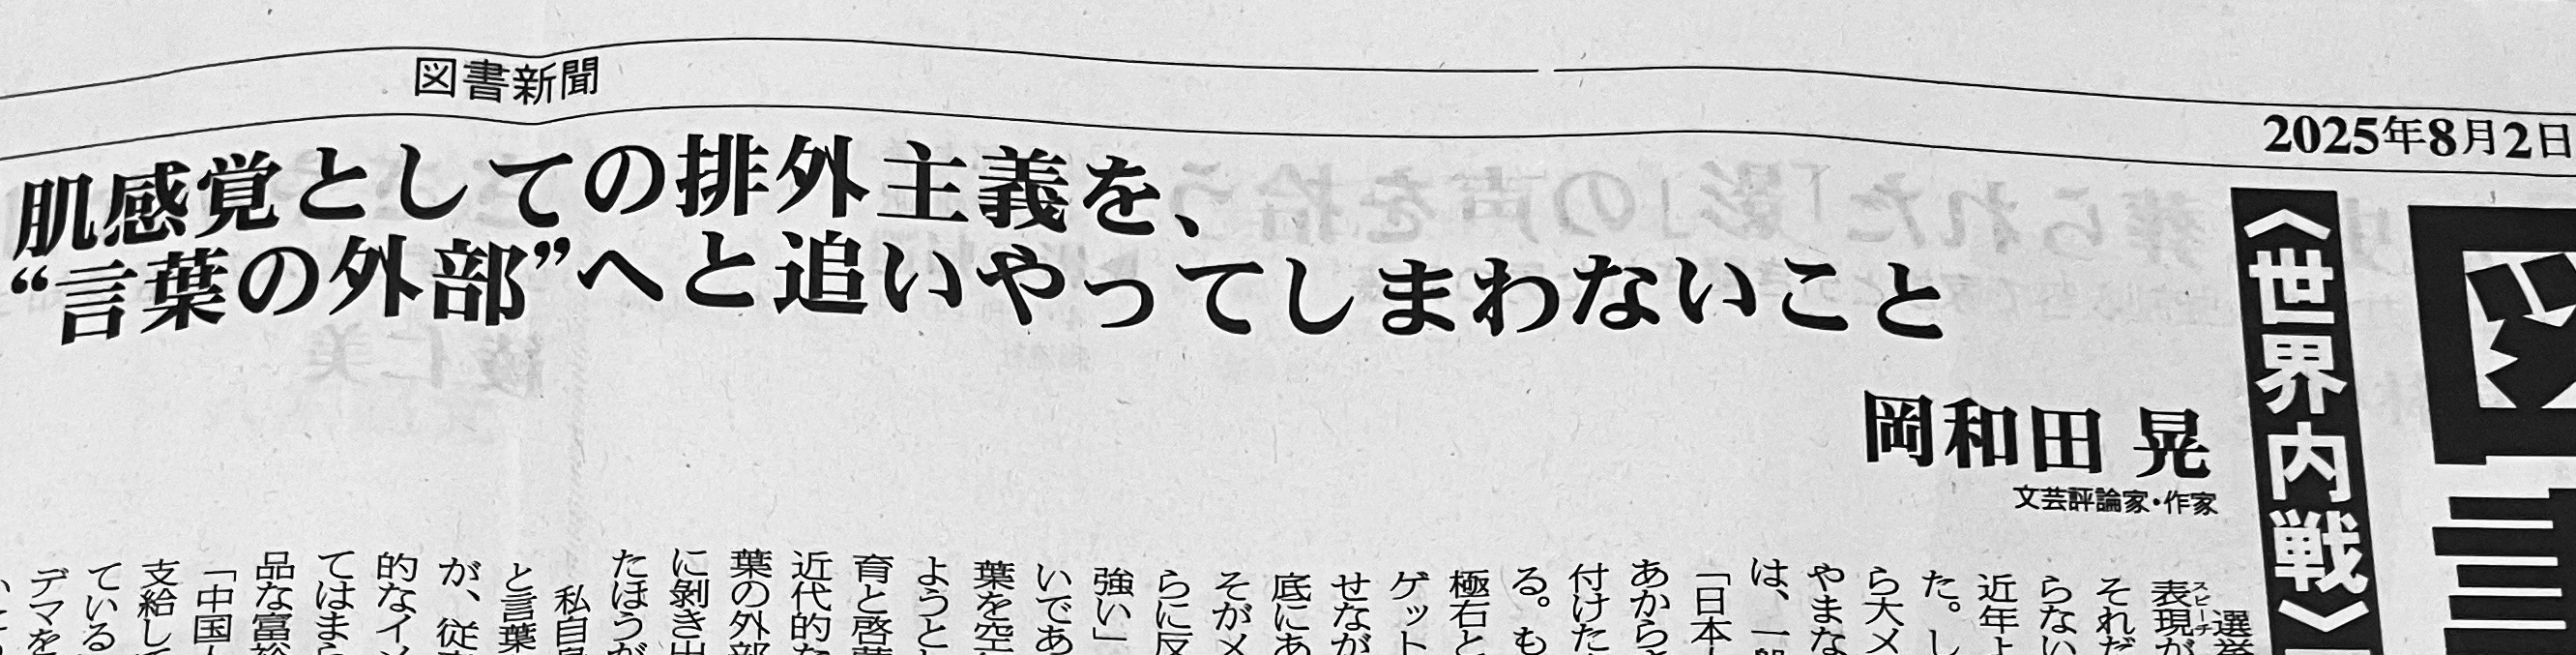 図書新聞
2025年8月2日
肌感覚としての排外主義を、
“言葉の外部”へと追いやってしまわないこと
岡和田 晃
文芸評論家・作家
〈世界内戦〉
選挙
表現が
スピーチ
それだ
らない
近年よ
た。し
ら大メ
やまな
は、一般
「日本
あからさ
付けた
る。も
極右と
ゲット
せなが
底にあ
そがメ
らに反
強い」
いであ
葉を空
ようと
育と啓蒙
近代的な
葉の外部
に剥き出
たほうが
私自身
と言葉
が、従
的なイメ
てはまら
品な富裕
「中国
支給して
ている
デマを